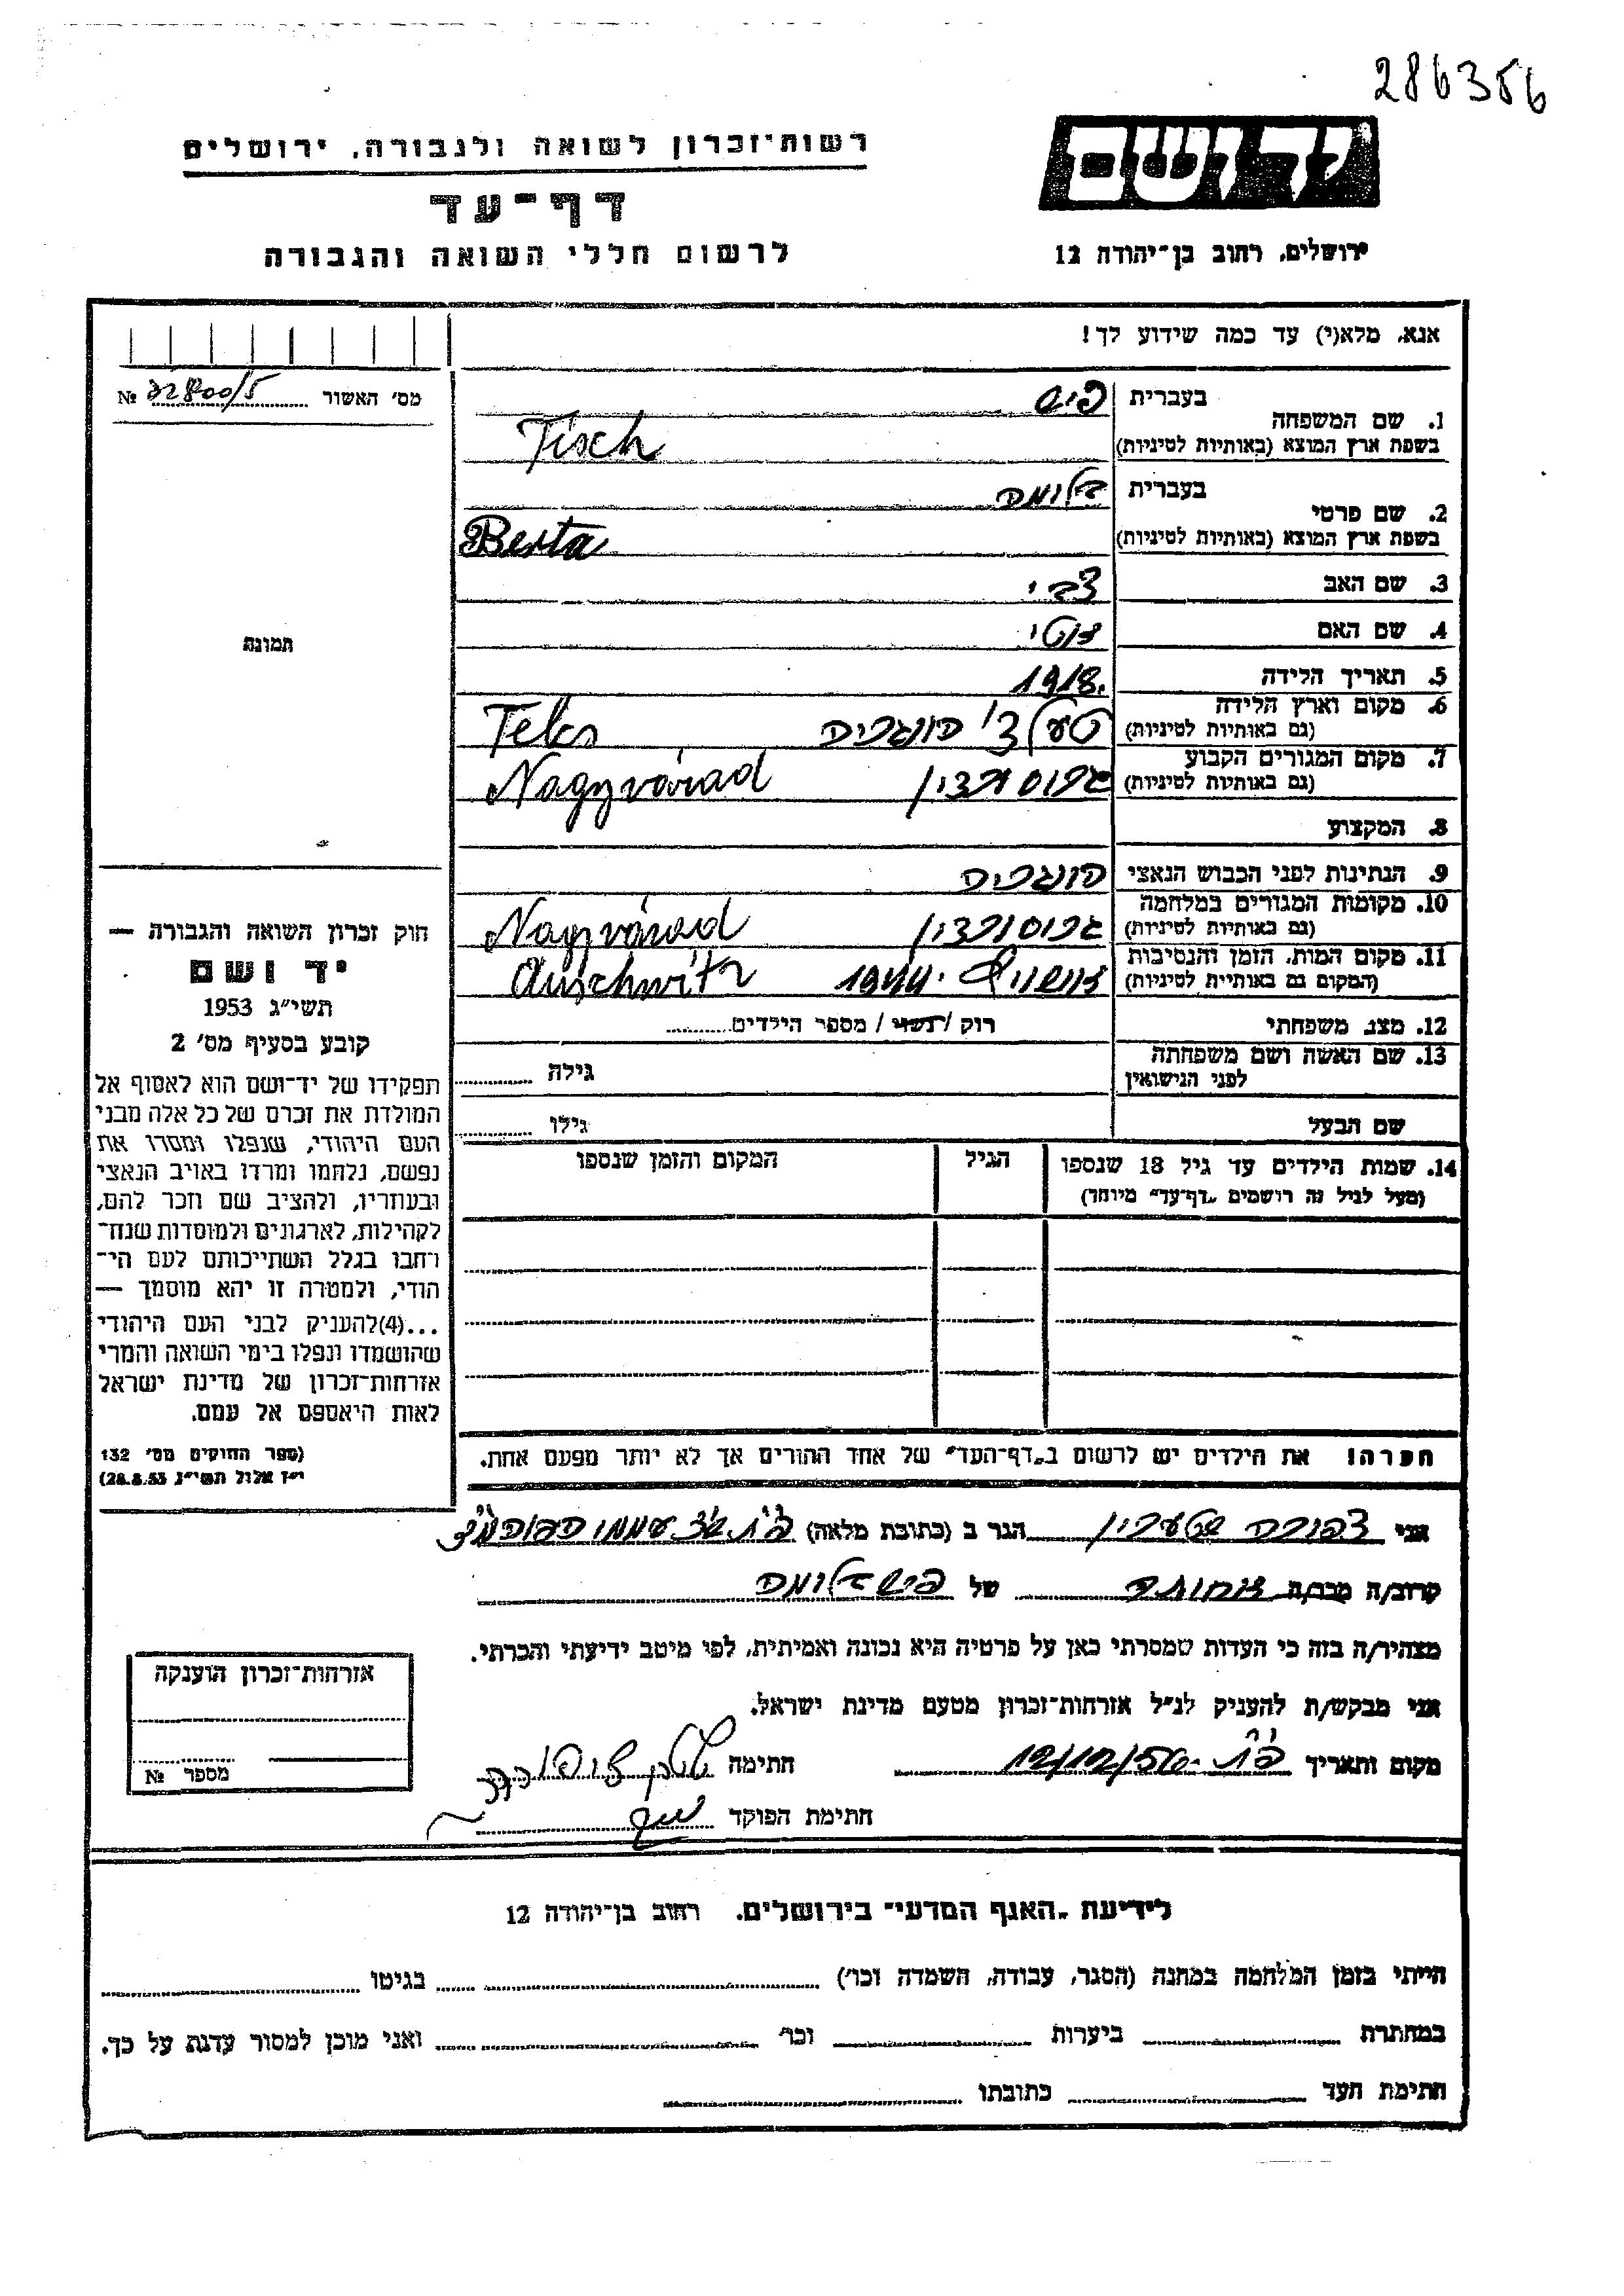 286356
רשות־זכרון לשואה ולגבורה, ירושלים
יד ושם
דף־עד
לרשום חללי השואה והגבורה
ירושלים, רחוב בן־יהודה 12
אנא, מלא(י) עד כמה שידוע לך!
מס׳ האשור № 22800/5
1. שם המשפחה
בעברית פיש
בשפת ארץ המוצא (באותיות לטיניות) Fisch
2. שם פרטי
בעברית בלומה
בשפת ארץ המוצא (באותיות לטיניות) Berta
3. שם האב צבי
4. שם האם אטי
5. תאריך הלידה 1918.
6. מקום וארץ הלידה
(גם באותיות לטיניות) הונגריה
7. מקום המגורים הקבוע
(גם באותיות לטיניות) גרוסורדין Nagyvárad
8. המקצוע
9. הנתינות לפני הכבוש הנאצי הונגריה
10. מקומות המגורים במלחמה
(גם באותיות לטיניות) גרוסורדין Nagyvárad
11. מקום המות, הזמן והנסיבות
(המקום גם באותיות לטיניות) אושויץ 1944. Auschwitz
12. מצב משפחתי רוק / נשוי / מספר הילדים
13. שם האשה ושם משפחתה
לפני הנישואין גילה
שם הבעל גילו
14. שמות הילדים עד גיל 18 שנספו הגיל המקום והזמן שנספו
(מעל לגיל זה רושמים „דף־עד״ מיוחד)
תמונה
חוק זכרון השואה והגבורה —
יד ושם
תשי״ג 1953
קובע בסעיף מס׳ 2
תפקידו של יד־ושם הוא לאסוף אל
המולדת את זכרם של כל אלה מבני
העם היהודי, שנפלו ומסרו את
נפשם, נלחמו ומרדו באויב הנאצי
ובעוזריו, ולהציב שם וזכר להם,
לקהילות, לארגונים ולמוסדות שנח־
רחבו בגלל השתייכותם לעם הי־
הודי, ולמטרה זו יהא מוסמך —
...(4) להעניק לבני העם היהודי
שהושמדו ונפלו בימי השואה והמרי
אזרחות־זכרון של מדינת ישראל
לאות היאספם אל עמם.
(ספר החוקים מס׳ 132
י״ז אלול תשי״ג, 28.8.53)
הערה! את הילדים יש לרשום ב„דף־העד״ של אחד ההורים אך לא יותר מפעם אחת.
אני צפורה שטערן הגר ב (כתובת מלאה)
קרוב/ה מכר/ה אחותה של פיש בלומה
מצהיר/ה בזה כי העדות שמסרתי כאן על פרטיה היא נכונה ואמיתית, לפי מיטב ידיעתי והכרתי.
אני מבקש/ת להעניק לנ״ל אזרחות־זכרון מטעם מדינת ישראל.
מקום ותאריך 12/12/56 חתימה
חתימת הפוקד
אזרחות־זכרון הוענקה
מספר №
לידיעת „האגף המדעי״ בירושלים, רחוב בן־יהודה 12
הייתי בזמן המלחמה במחנה (הסגר, עבודה, השמדה וכו׳) בגיטו
במחתרת ביערות וכו׳ ואני מוכן למסור עדות על כך.
חתימת העד כתובתו